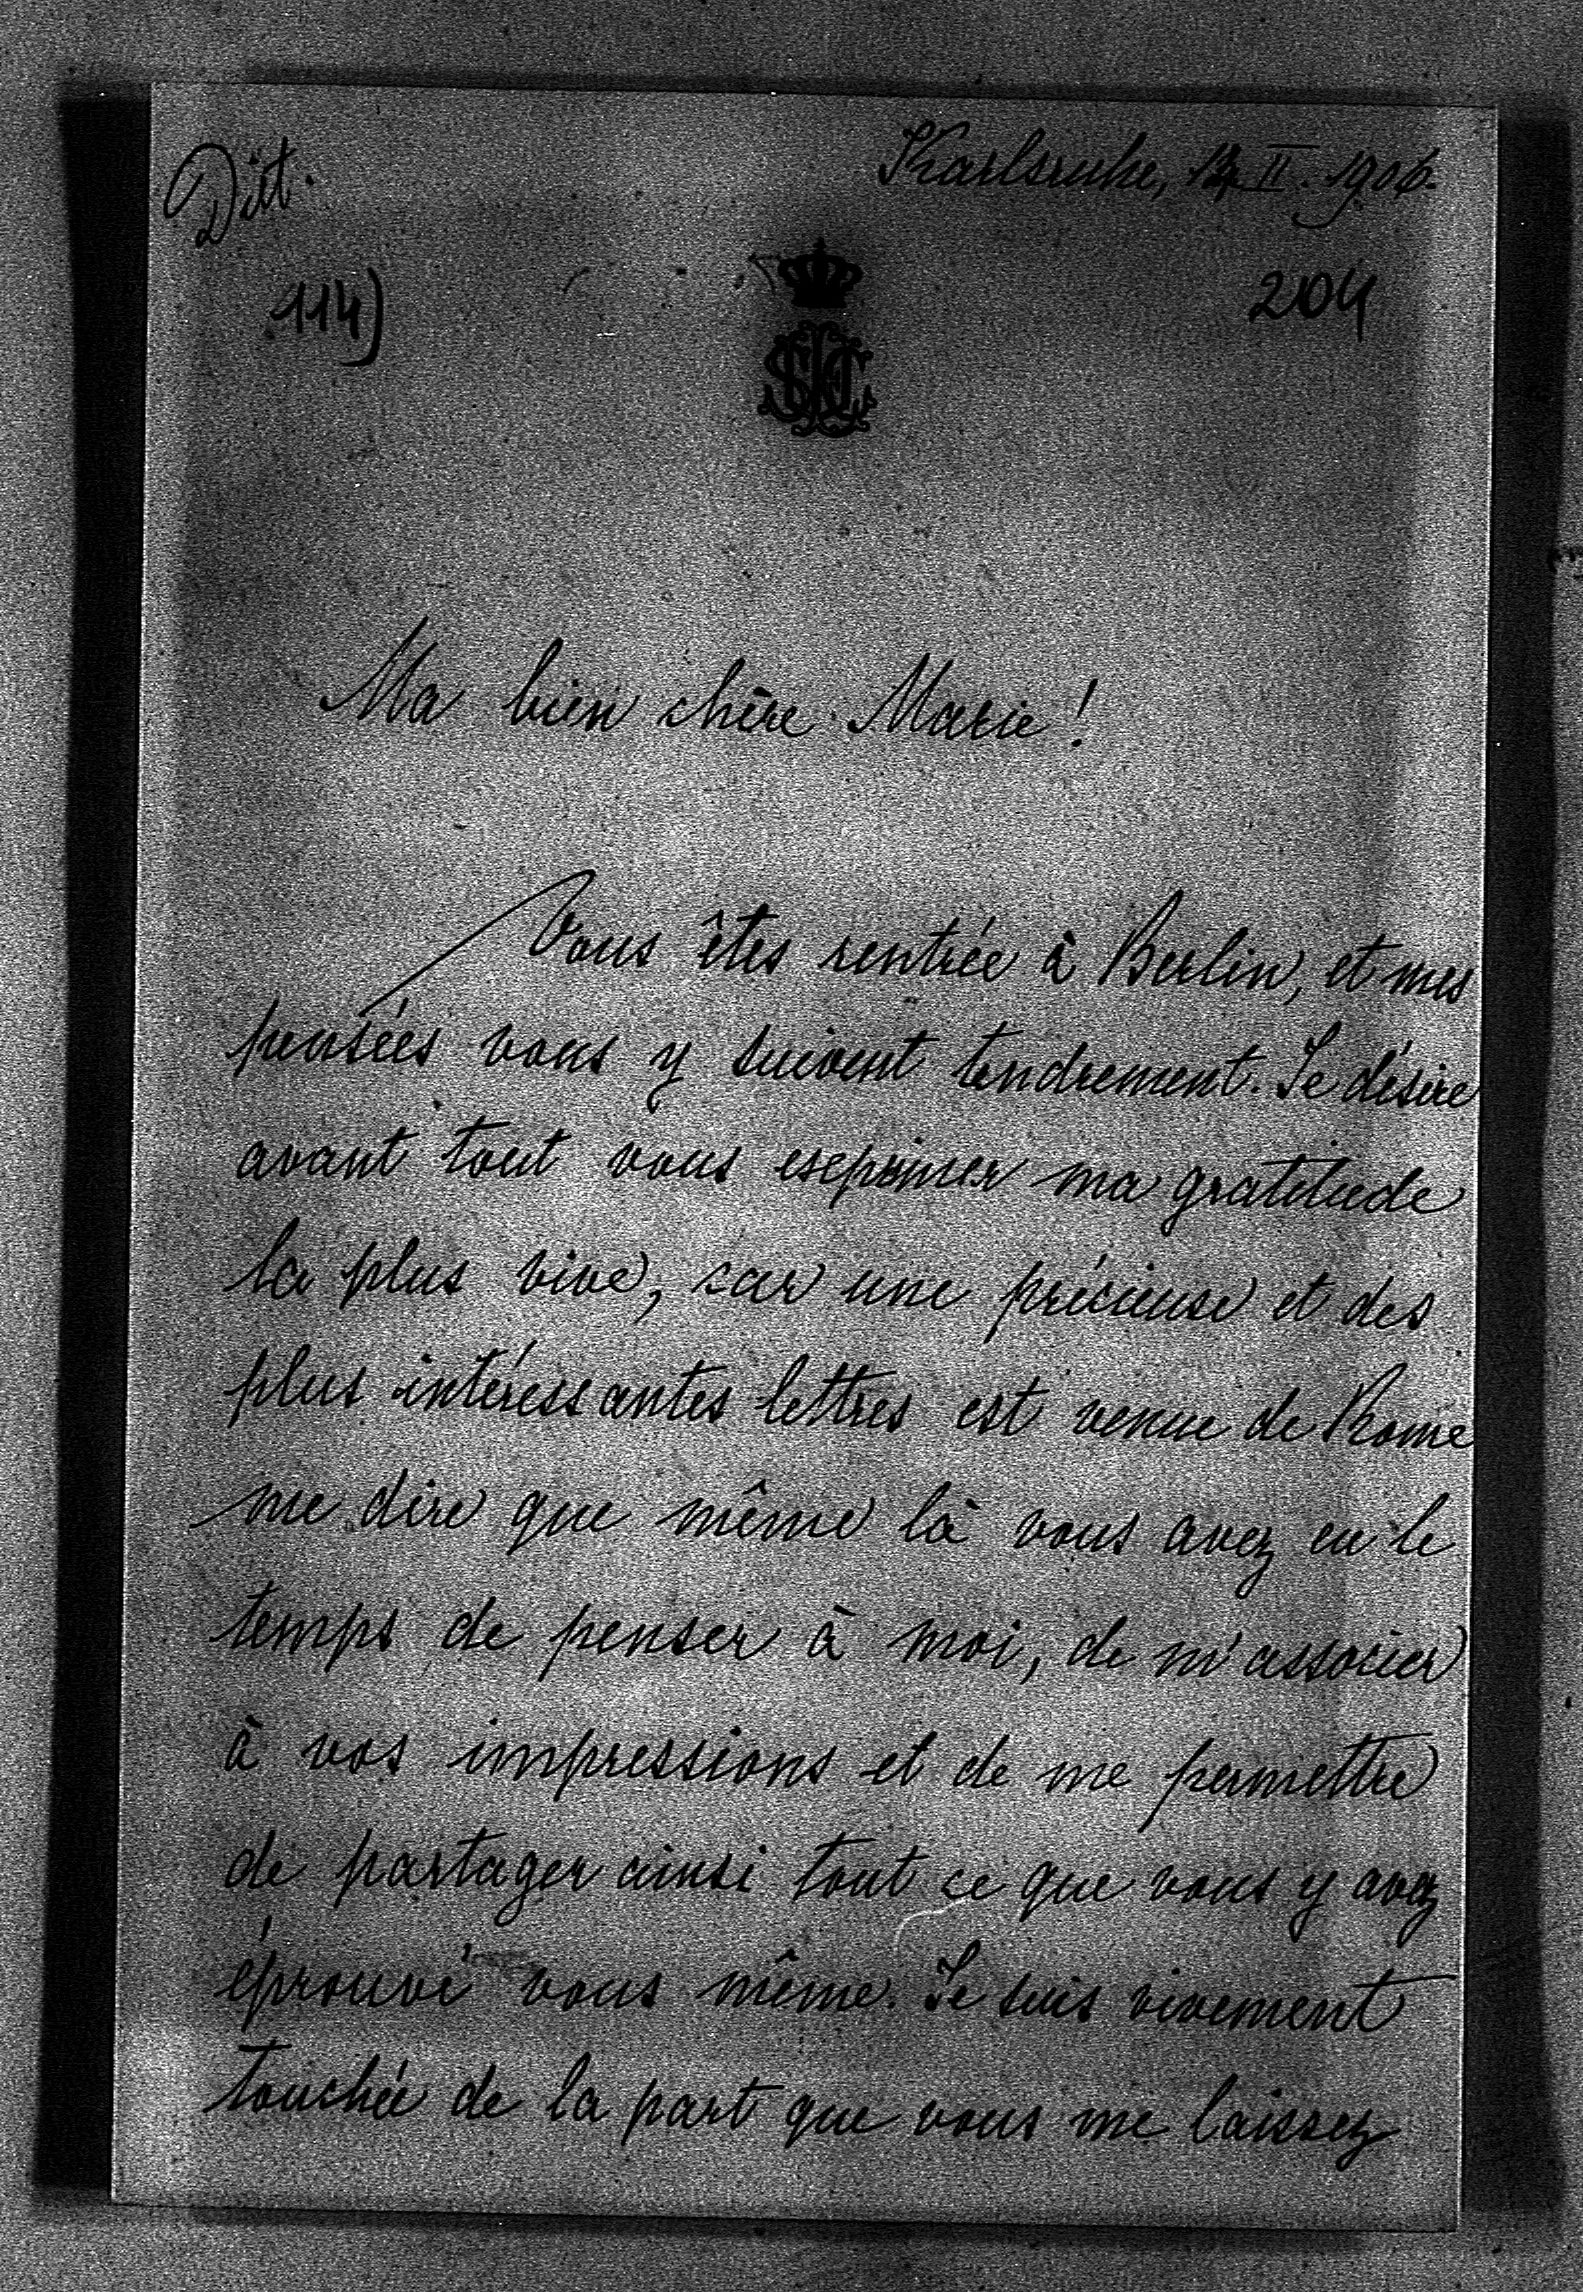 Dikt.
Karlsruhe, 14 II. 1906.
114)
204
Ma bien chère Marie!
Vous êtes rentrée à Berlin, et mes
pensées vous y suivent tendrement. Je désire
avant tout vous exprimer ma gratitude
la plus vive, car une précieuse et des
plus intéressantes lettres est venue de Rome
me dire que même là vous avez eu le
temps de penser à moi, de m'associer
à vos impressions et de me permettre
de partager ainsi tout ce que vous y avez
éprouvé vous même. Je suis vivement
touchée de la part que vous me laissez